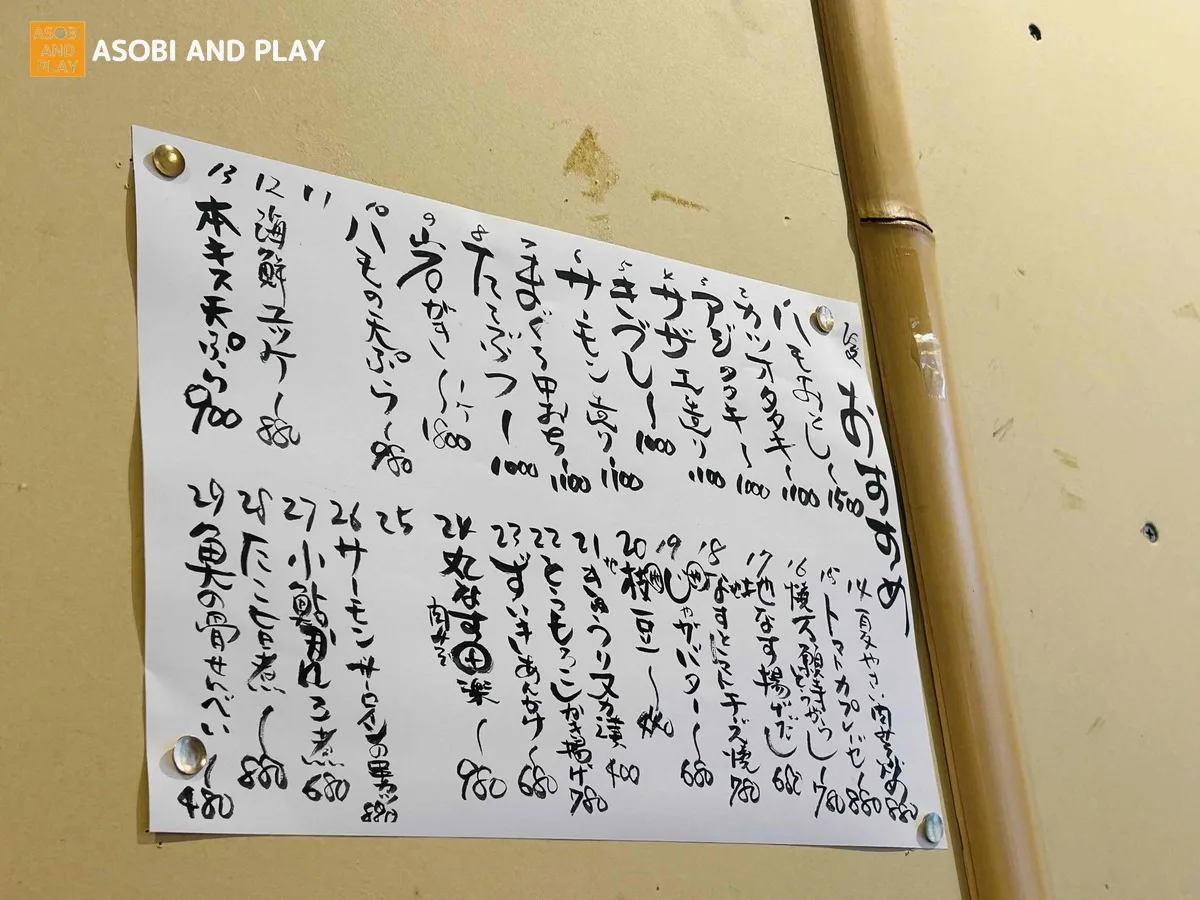 ASOBI AND PLAY
ASOBI AND PLAY
おすすめ
ハモおとし〜1500
2 カツオタタキ〜1100
3 アジタタキ〜1000
4 サザエ造り 1100
5 きずし〜1000
6 サーモン造り 1100
7 まぐろ 1100
8 たこぶつ〜1000
9 岩がき〜 1800
10 ハモの天ぷら〜980
11
12 海鮮ユッケ〜880
13 本キス天ぷら 900
14 夏やさい肉みそ炒め 880
15 トマトカプレーゼ〜880
16 焼万願寺とうがらし〜780
17 地なす揚げだし 680
18 なすとトマトチーズ焼 780
19 じゃがバター〜680
20 枝豆〜
21 きゅうり又は漬 400
22 とうもろこしかき揚げ 780
23 ずいきあんかけ〜680
24 丸なす田楽〜980
肉みそ
25
26 サーモンサーロインの串カツ 880
27 小鮎有馬煮 680
28 たこ旨煮〜880
29 魚の骨せんべい〜480